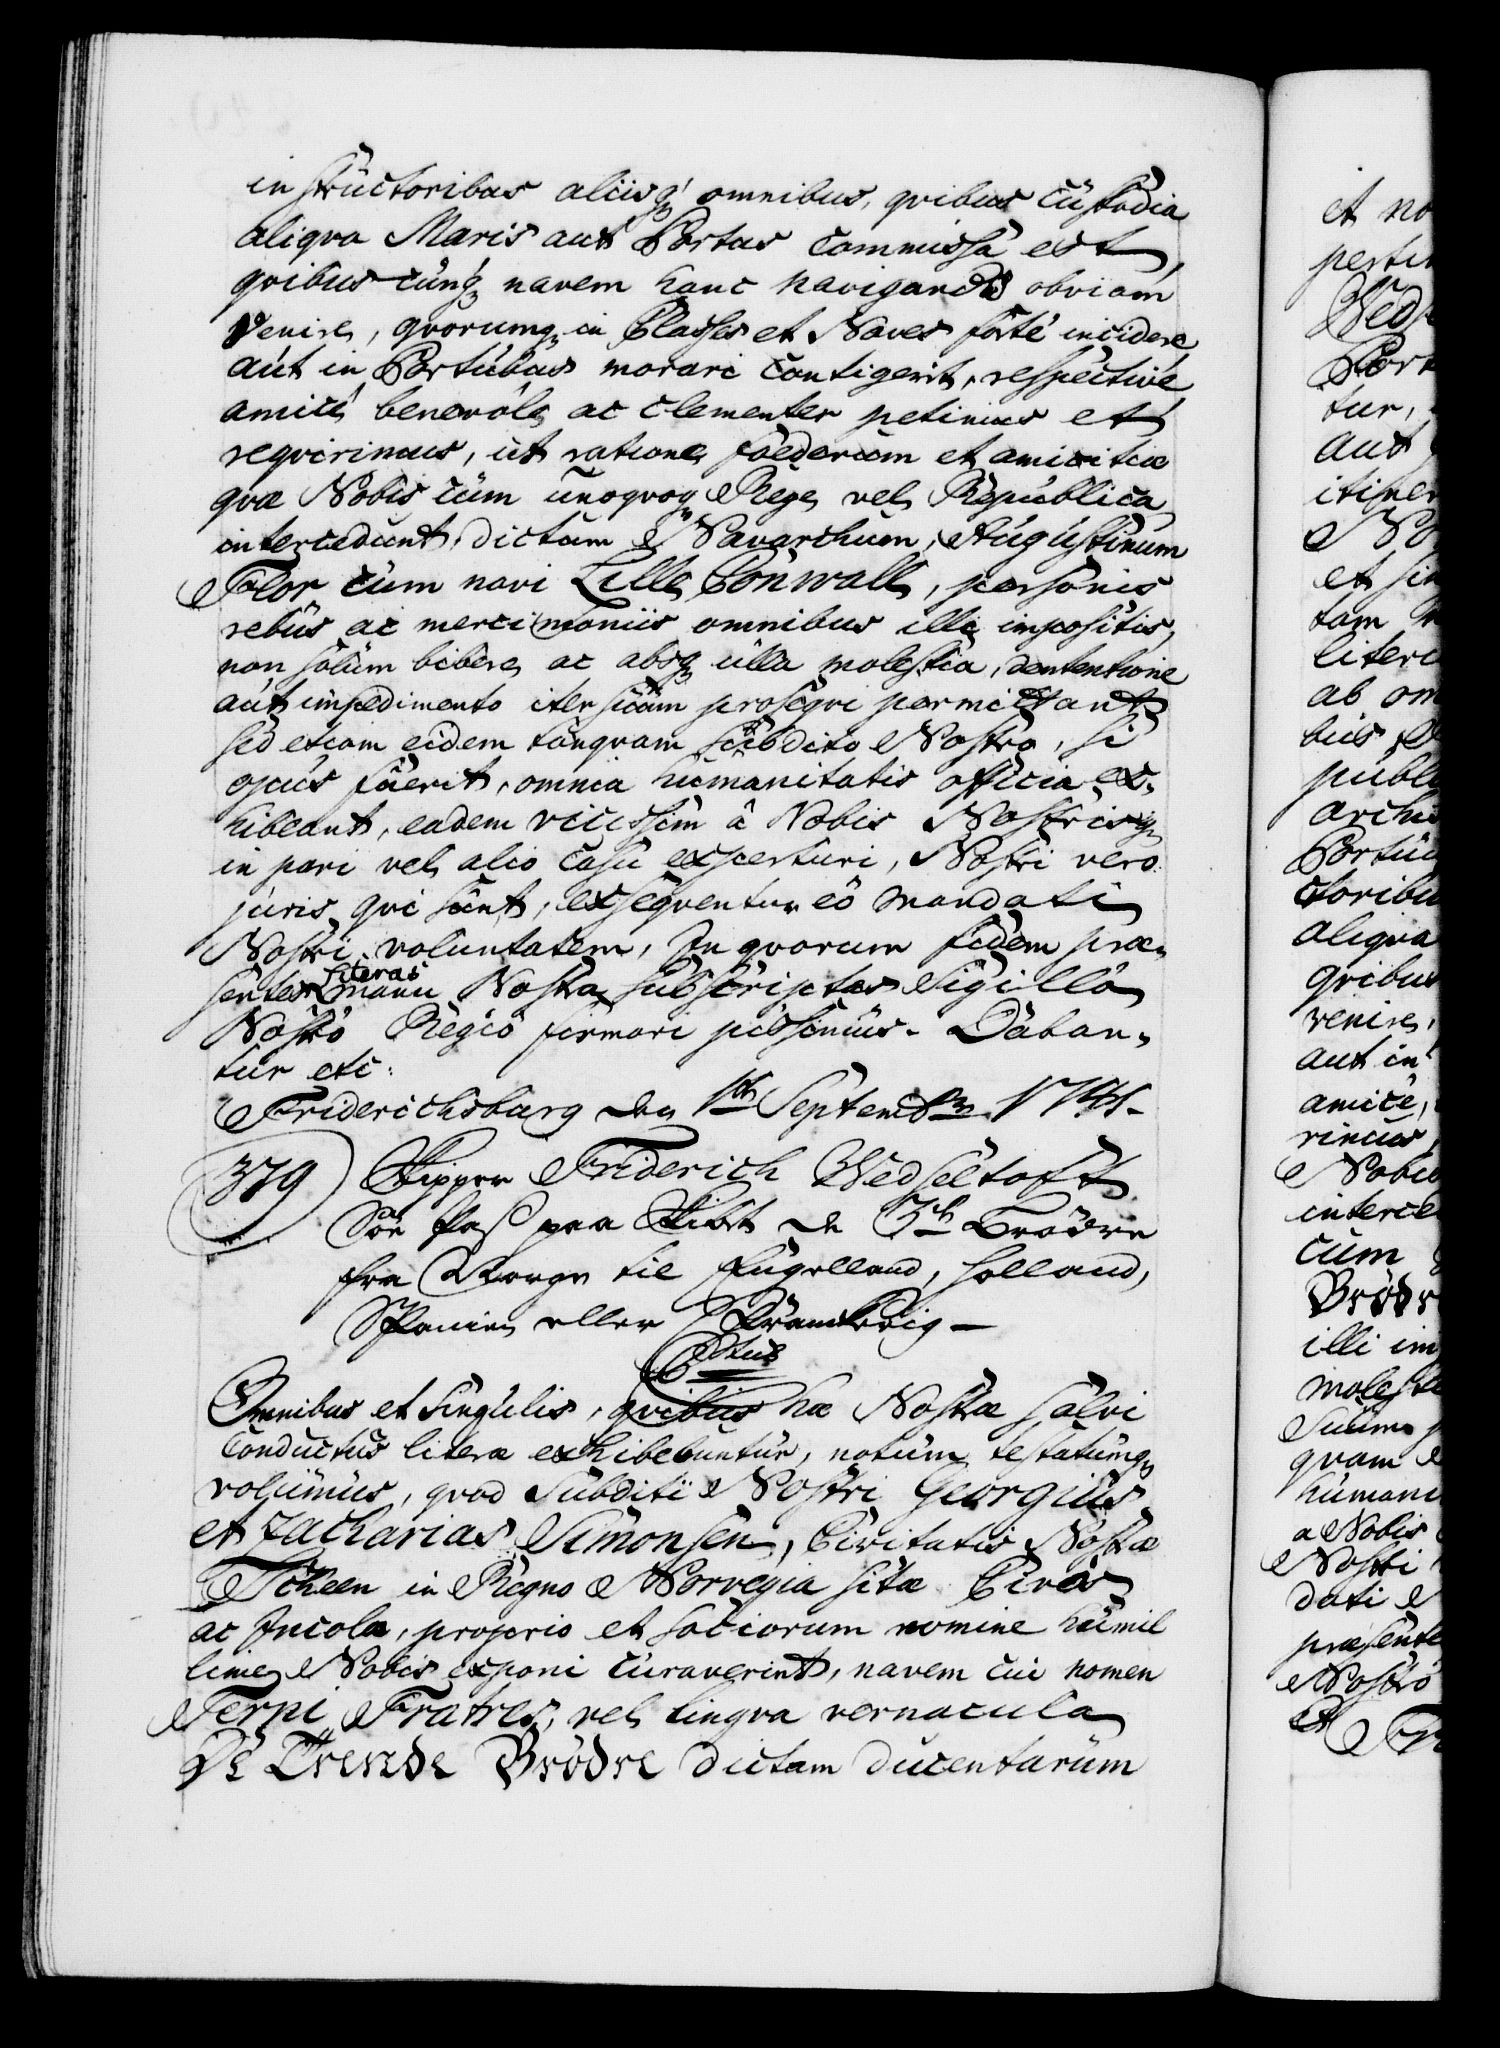 instructoribus aliisq; omnibus, qvibus custodia
aliqva Maris aut Portus commissa est,
qvibuscunq; navem hanc navigando obviam
venire, qvorumq; in Classes et Naves forté incidere
aut in Portubus morari contigerit, respective
amicé, benevole ac clementer petimus et
reqvirimus, ut ratione foederum et amicitiæ
qvæ Nobis cum unoqvoq; Rege vel Republica
intercedunt, dictum Navarchum, Augustinum
Flor cum navi Lille Conwall, personis
rebus ac mercimoniis omnibus illi impositis,
non solum libere ac absq; ulla molestia, dententione
aut impedimento iter suum proseqvi permittant
sed etiam eidem tanqvam subdito Nostro, si
opus fuerit, omnia humanitatis officia ex-
hibeant, eadem vicissim â Nobis Nostrisq;
in pari vel alio casu experturi, Nostri vero
juris qvi sunt, exseqventur eô mandati
Nostri voluntatem, In qvorum fidem præ-
sentes Literas manu Nostra subscriptas Sigillo
Nostro Regio firmari jussimus. Daban-
tur etc:
Friderichsburg den 1ste Septembr 1741.
379 Skipper Friderich Wedseltoft
Søe Pas paa Skibet de Trende Brødre
fra Norge til Engelland, Holland,
Spanien eller Franckrig —
Omnibus et singulis, qvibus hæ Nostræ salvi
conductus literæ exhibebuntur, notum testatumq;
volumus, qvod Subditi Nostri Georgius
et Zacharias Simonsen, Civitatis Nostræ
Scheen in Regno Norvegiæ sitæ Cives
ac Incolæ, proprio et sociorum nomine humil
lime Nobis exponi curaverint, navem cui nomen
Terni Fratres, vel lingva vernacula
De Trende Brødre dictam ducentarum
et no
pertin
Weds
Por
tur,
aut
itiner
No
et sin
tam
liter
ab om
bus
publi
archi
Portu
ctoribu
aliqva
qvibus
venire,
aut in
amicè,
rimus,
Nobis
interce
cum
Brødr
illi im
moleste
suum
qvam
humani
a Nobis
Nostri
dati
præsente
Nostro
Fr